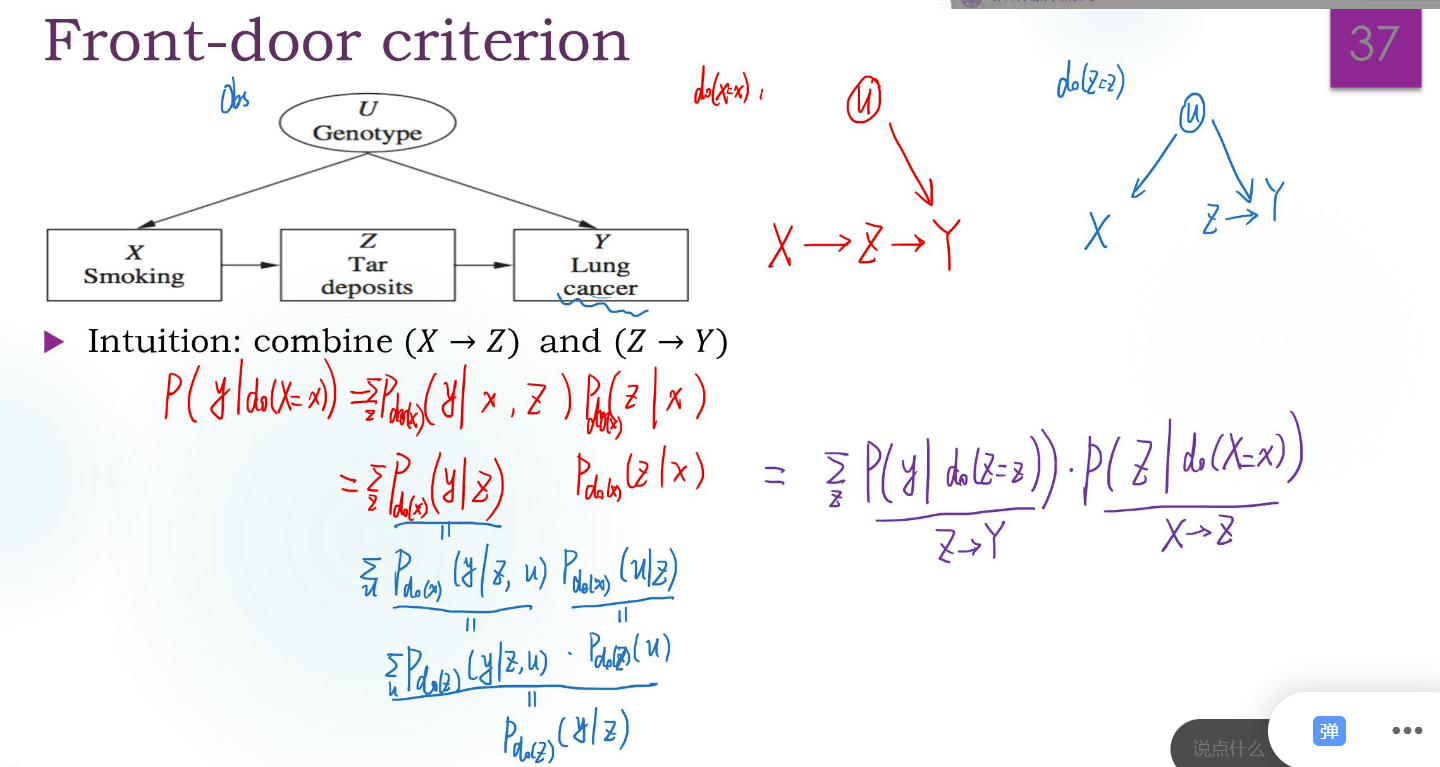 Front-door criterion
37
Obs
do(X=x),
do(Z=z)
U
Genotype
U
U
X
Smoking
Z
Tar
deposits
Y
Lung
cancer
X → Z → Y
X
Z → Y
▶ Intuition: combine (X → Z) and (Z → Y)
P(y|do(X=x)) = Σ_z P_do(x)(y|x, z) P_do(x)(z|x)
= Σ_z P_do(x)(y|z) P_do(x)(z|x)
= Σ_z P(y|do(Z=z)) · P(z|do(X=x))
Z→Y
X→Z
||
Σ_u P_do(x)(y|z, u) P_do(x)(u|z)
|| ||
Σ_u P_do(z)(y|z,u) · P_do(z)(u)
||
P_do(z)(y|z)
弹
说点什么